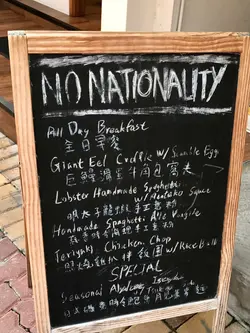 NO NATIONALITY
All Day Breakfast
全日早餐
Giant Eel Croffle w/ Scramble Egg
巨鰻滑蛋牛角包窩夫
Lobster Handmade Spaghetti
w/ Mentaiko Sauce
明太子龍蝦手工意粉
Handmade Spaghetti Alle Vongole
手工意粉
Teriyaki Chicken Chop
w/ Rice Ball
照燒雞扒伴飯團
SPECIAL
Seasonal